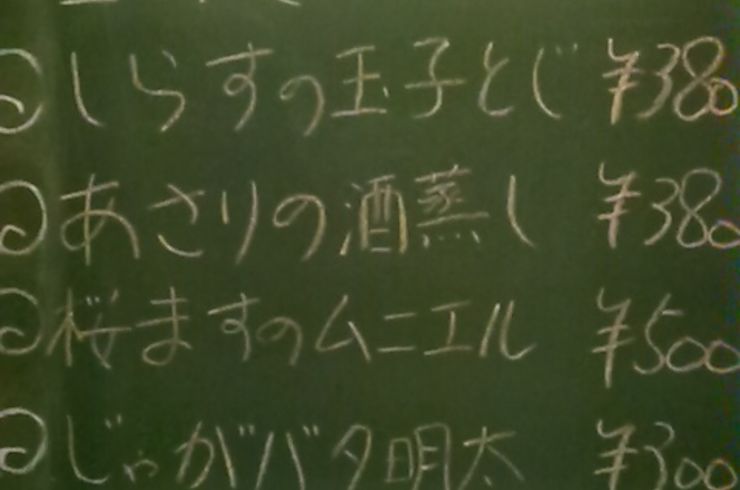 しらすの玉子とじ ¥380
あさりの酒蒸し ¥380
桜ますのムニエル ¥500
じゃがバタ明太 ¥300